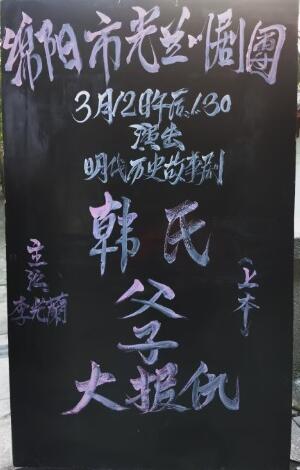 绵阳市光兰川剧团
3月12日午后1:30
演出
明代历史故事剧
韩氏
父
子
大报仇
(上本)
主演
李光兰